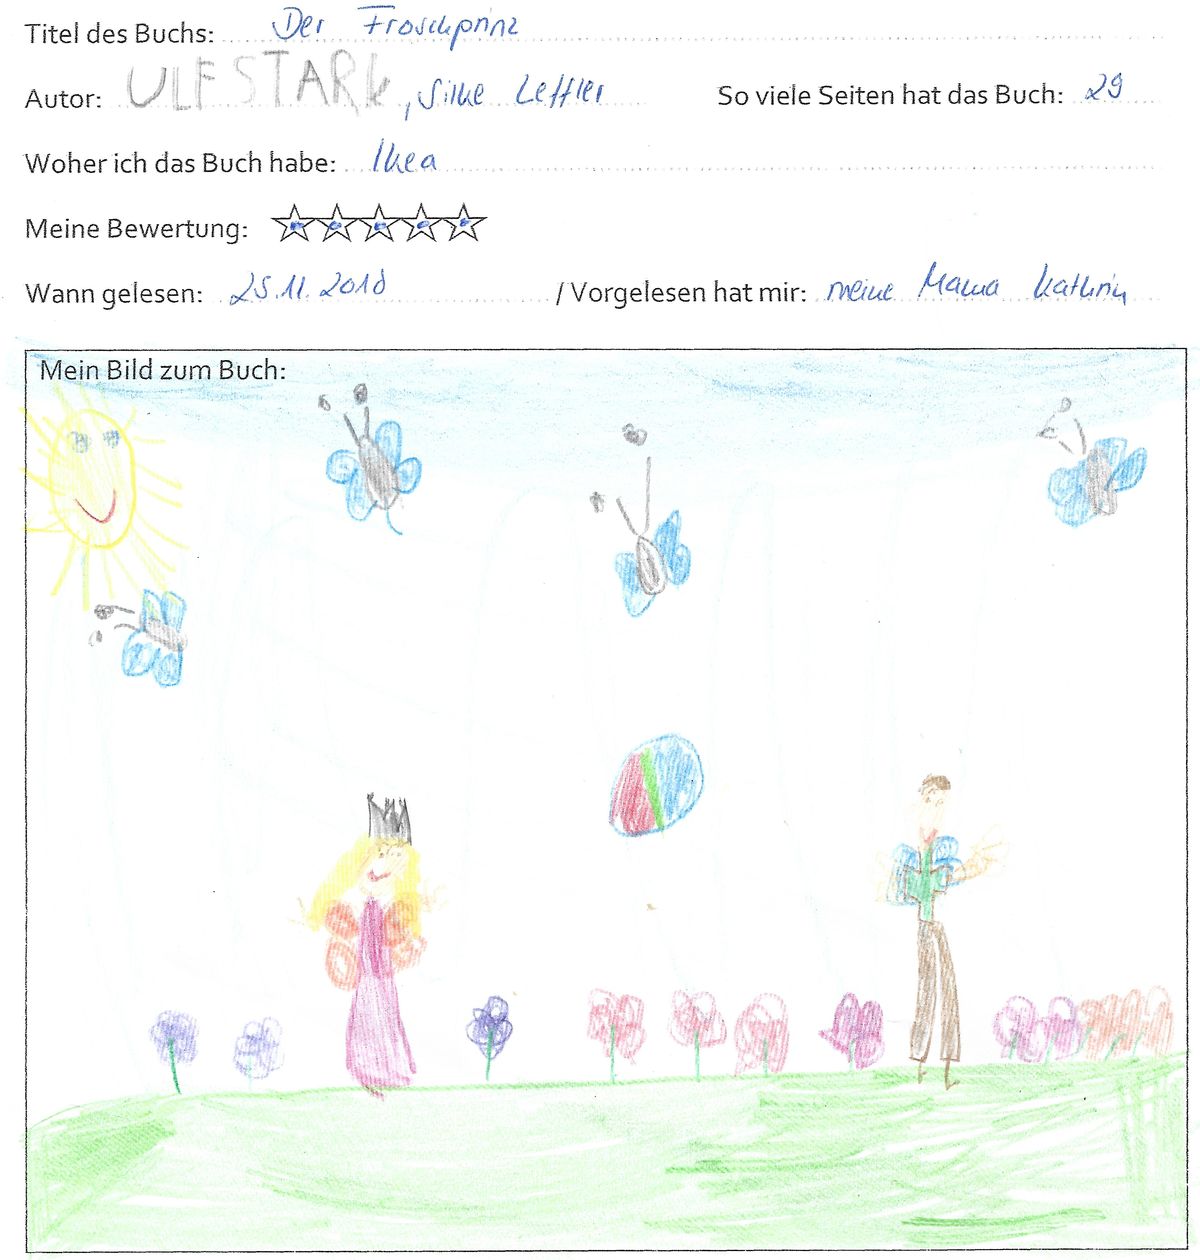 Titel des Buchs: Der Froschprinz
Autor: ULF STARk, Silke Leffler So viele Seiten hat das Buch: 29
Woher ich das Buch habe: Ikea
Meine Bewertung:
Wann gelesen: 25.11.2018 / Vorgelesen hat mir: meine Mama Kathrin
Mein Bild zum Buch: